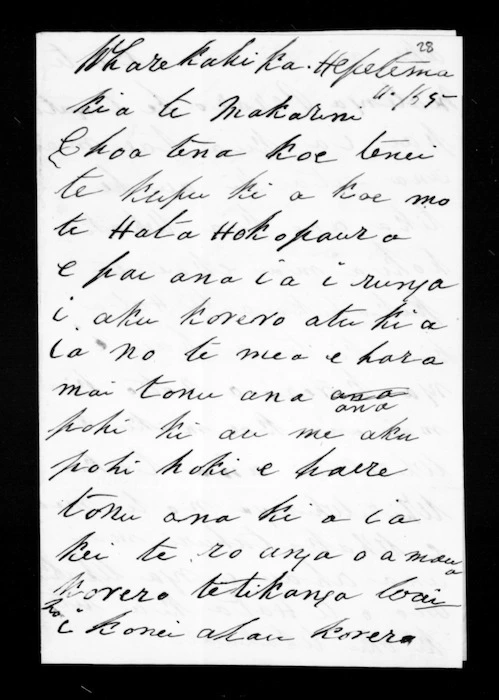 28
Wharekahika. Hepetema
11. / 65
kia te Makarini
E hoa tena koe tenei
te kupu ki a koe mo
te Hata Hokopaura
e pai ana ia i runga
i aku korero atu ki a
ia no te mea e hara
mai tonu ana ana
ana
pohi ki au me aku
pohi hoki e haere
tonu ana ki a ia
kei te ro anga o a maua
korero te tikanga Wai
ho i konei atau korero